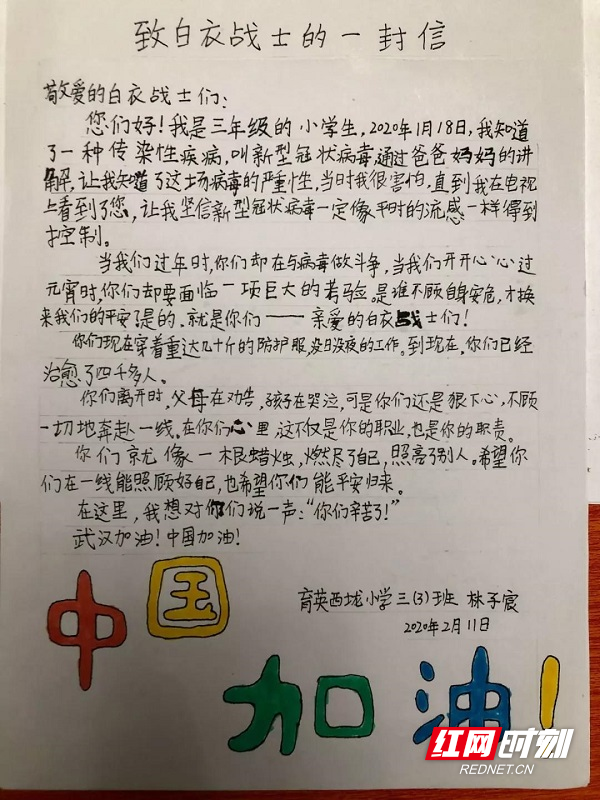 致白衣战士的一封信
敬爱的白衣战士们：
您们好！我是三年级的小学生，2020年1月18日，我知道
了一种传染性疾病，叫新型冠状病毒，通过爸爸妈妈的讲
解，让我知道了这场病毒的严重性，当时我很害怕，直到我在电视
上看到了您，让我坚信新型冠状病毒一定像平时的流感一样得到
控制。
当我们过年时，你们却在与病毒做斗争，当我们开开心心过
元宵时，你们却要面临一项巨大的考验。是谁不顾自身安危，才换
来我们的平安？是的，就是你们——亲爱的白衣战士们！
你们现在穿着重达几十斤的防护服，没日没夜的工作。到现在，你们已经
治愈了四千多人。
你们离开时，父母在劝告，孩子在哭泣，可是你们还是狠下心，不顾
一切地奔赴一线。在你们心里，这不仅是你的职业，也是你的职责。
你们就像一根蜡烛，燃尽了自己，照亮了别人。希望你
们在一线能照顾好自己，也希望你们能平安归来。
在这里，我想对你们说一声：“你们辛苦了！”
武汉加油！中国加油！
育英西垅小学三(3)班 林子宸
2020年2月11日
中国
加油！
红网时刻
REDNET.CN